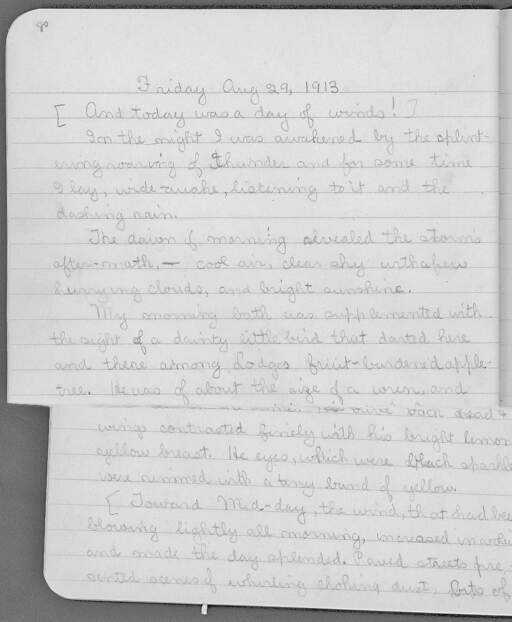 80
Friday Aug 29, 1913
[ And today was a day of winds! ]
In the night I was awakened by the splint-
ering roaring of thunder and for some time
I lay, wide awake, listening to it and the
dashing rain.
The dawn of morning revealed the storm's
after-math, — cool air, clear sky with a few
hurrying clouds, and bright sunshine.
My morning bath was supplemented with
the sight of a dainty little bird that darted here
and there among Lodges fruit-burdened apple-
tree. He was of about the size of a wren, and
olive back head &
wings contrasted finely with his bright lemon
yellow breast. He eyes, which were black sparkle
were rimmed with a tiny band of yellow.
[ Toward Mid-day, the wind, that had bee
blowing lightly all morning, increased in
and made the day splended. Paved streets pre-
sented scenes of whirling choking dust. Bits of